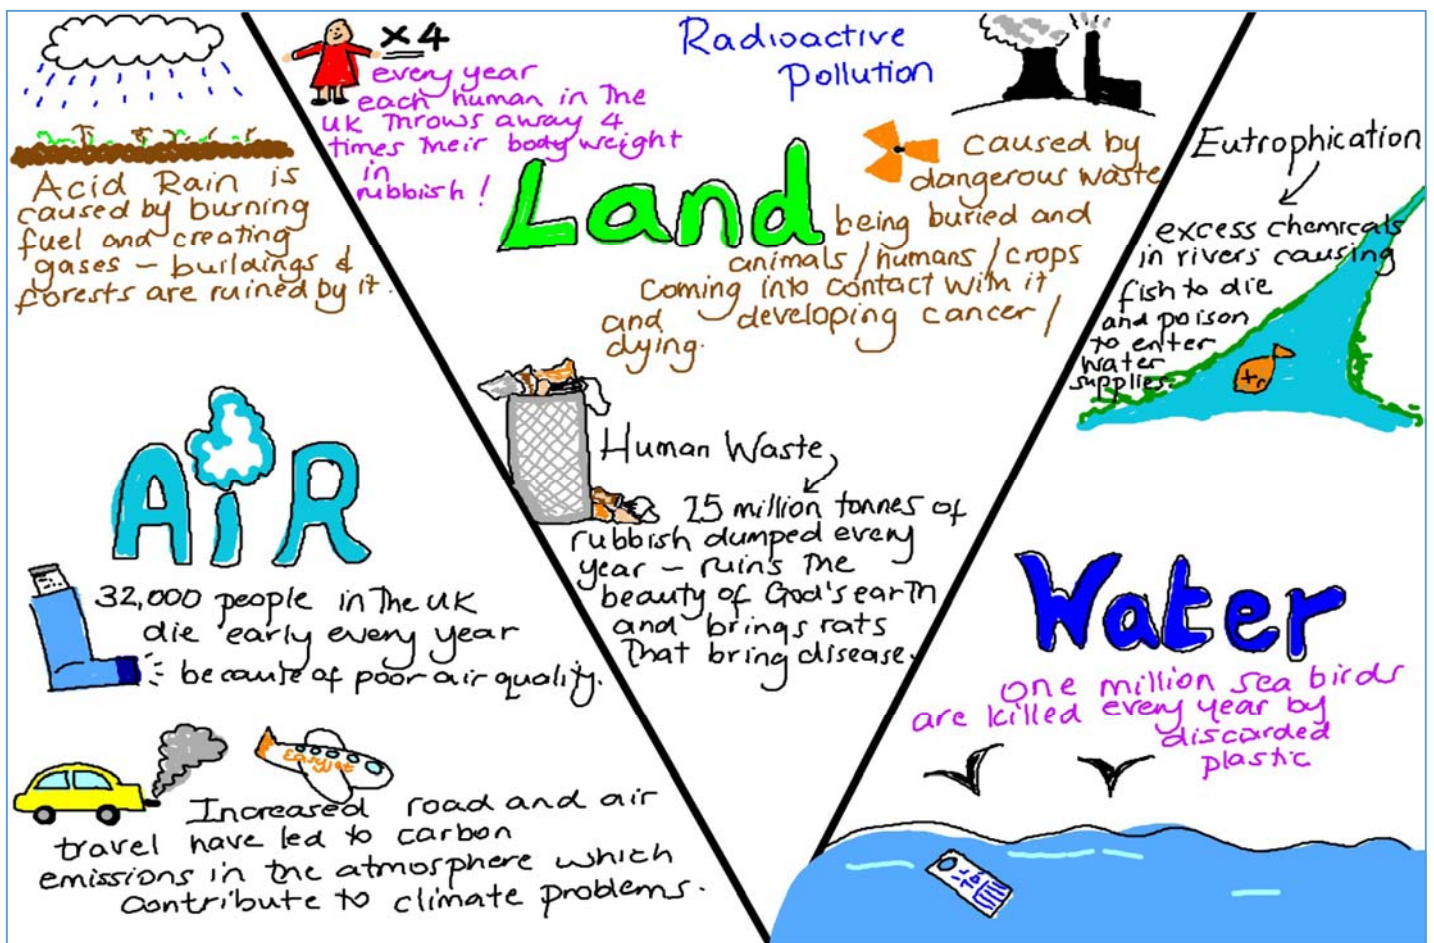 Acid Rain is
caused by burning
fuel and creating
gases – buildings &
forests are ruined by it.
AIR
32,000 people in the UK
die early every year
because of poor air quality.
easyjet
Increased road and air
travel have led to carbon
emissions in the atmosphere which
contribute to climate problems.
x4
every year
each human in the
UK throws away 4
times their body weight
in
rubbish!
Land
Radioactive
Pollution
caused by
dangerous waste
being buried and
animals/humans/crops
coming into contact with it
and developing cancer/
dying.
Human Waste
25 million tonnes of
rubbish dumped every
year – ruins the
beauty of God's earth
and brings rats
that bring disease.
Eutrophication
excess chemicals
in rivers causing
fish to die
and poison
to enter
water
supplies.
Water
one million sea birds
are killed every year by
discarded
plastic